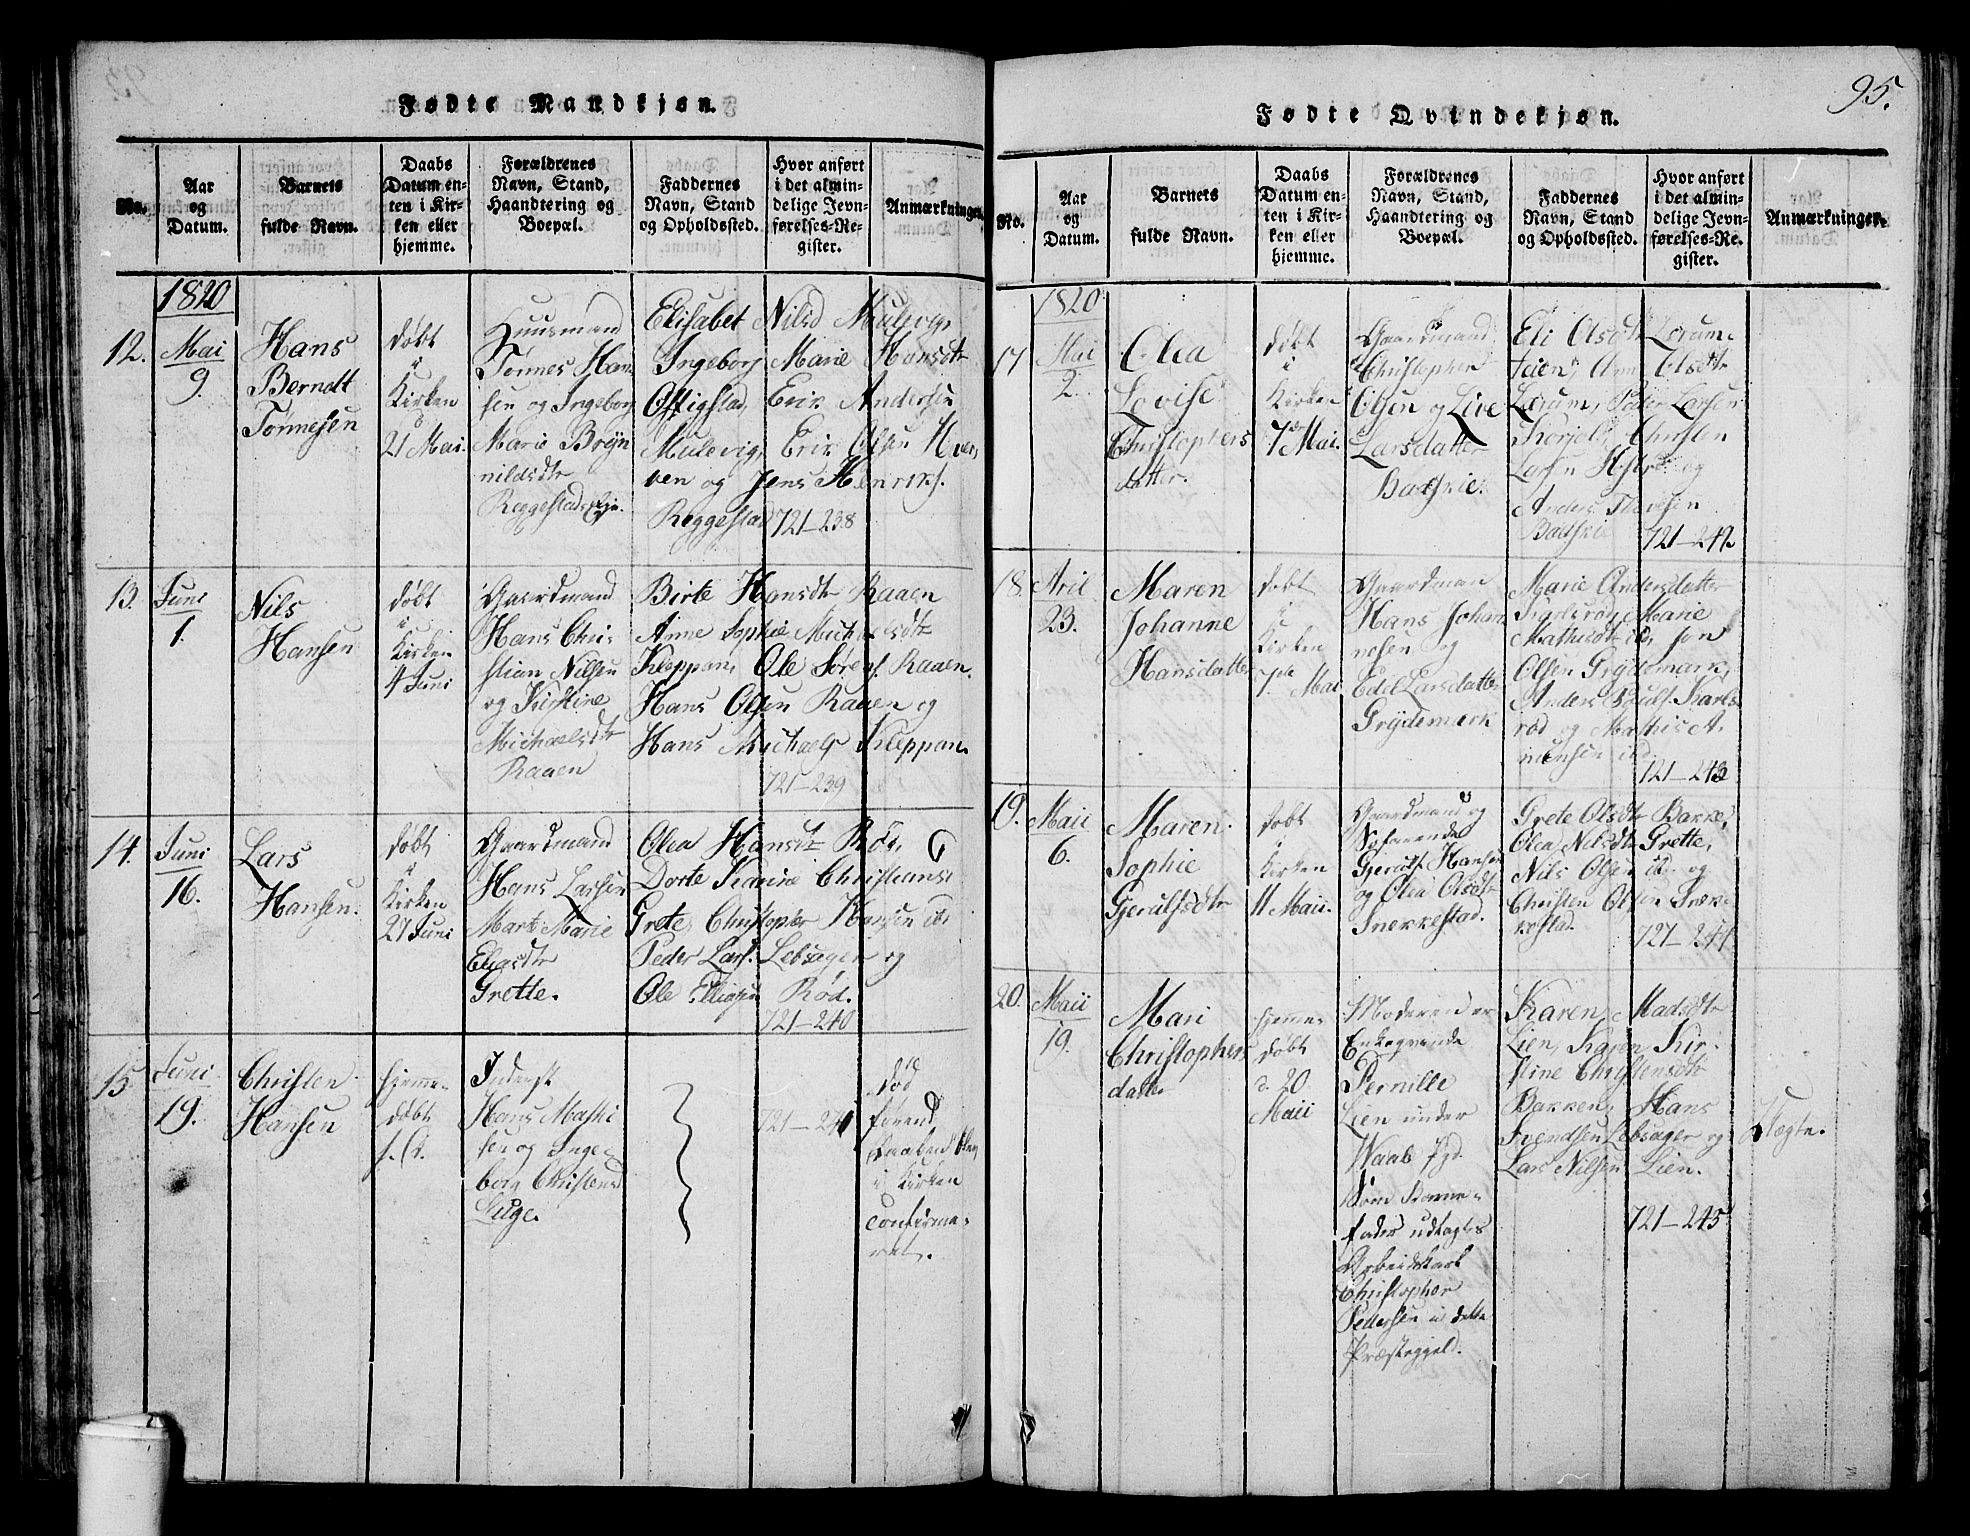 95.
Fødte Mandkjøn.
No.
Aar
og
Datum.
Barnets
fulde Navn.
Daabs
Datum en-
ten i Kir-
ken eller
hjemme.
Forældrenes
Navn, Stand,
Haandtering og
Boepæl.
Faddernes
Navn, Stand
og Opholdssted.
Hvor anført
i det almin-
delige Jevn-
førelses-Re-
gister.
Anmærkninger.
1820
12.
Mai
9.
Hans
Berndt
Tønnesen
døbt
i
Kirken
21 Mai.
Huusmand
Tønnes Han
sen og Ingeborg
Marie Bryn
nildsdtr
Reggestadeje.
Elisabet Nilsd Mulevig,
Ingeborg Marie Hansdtr
Oftigstad, Erik Andersen
Mulevig, Erik Olsen Hver
ven og Jens Henriks.
Reggestad
721-238
13.
Juni
1.
Nils
Hansen
døbt
i
Kirken
4 Juni
Gaardmand
Hans Chri
stian Nilsen
og Kirstine
Michaelsdtr
Raaen
Birte Hansdtr Raaen
Anne Sophie Michaelsdtr
Kleppan, Ole Sørens. Raaen.
Hans Olsen Raaen og
Hans Michaels Kleppan.
721-239
14.
Juni
16.
Lars
Hansen.
døbt
i
Kirken
27 Juni
Gaardmand
Hans Larsen
Mart Marie
Eliasdtr
Grette.
Olea Hansdtr Rød,
Dorte Karine Christians
Grete, Christopher Hansen ib.
Peder Lars. Lebsager og
Ole Eliasen Rød.
721-240
15
Juni
19.
Christen
Hansen
hjemme-
døbt
s. d.
Inderst
Hans Mathi
sen og Inge-
borg Christensd
Huge.
721-241
død
førend
Daaben blev
i Kirken
confirme-
ret.
Fødte Qvindekjøn.
No.
Aar
og
Datum.
Barnets
fulde Navn.
Daabs
Datum en-
ten i Kir-
ken eller
hjemme.
Forældrenes
Navn, Stand,
Haandtering og
Boepæl.
Faddernes
Navn, Stand
og Opholdssted.
Hvor anført
i det almin-
delige Jevn-
førelses-Re-
gister.
Anmærkninger.
1820
17
Mai
2.
Olea
Lovise
Christophers
datter.
døbt
i
Kirken
7 Mai.
Gaardmand
Christopher
Olsen og Live
Larsdatter
Badskie.
Eli Olsdtr Lerum
Olsdtr
Lerum, Peder Larsen
Christen
Larsen og
Anders
Badskie
721-242
18.
Aril
23.
Maren
Johanne
Hansdatter
døbt
i
Kirken
7de Mai
Gaardman
Hans Johan
nesen og
Edel Larsdatter
Grydemark
Marie Andersdatter
Marie
Olsen Grydemark,
Anders
rød og Mathis A
721-243
19.
Maii
6.
Maren
Sophie
Gjerulfsdtr
døbt
i
Kirken
11 Maii.
Gaardmand og
Søfarende
Gjerulf Hansen
og Olea Olsdtr
Snekkestad.
Grete Olsdtr Bakke,
Olea Nilsdtr Grette,
Nils Olsen ib. og
Christen Olsen Snek-
kestad.
721-244
20.
Maii
19.
Mari
Christophers
datter
hjemme-
døbt
d. 20
Maii
Moderen er
Enkeqvinde
Pernille
Lien under
Waale Pgd.
Som Barne-
fader udlagtes
Arbeidskarl
Christopher
Pedersen i dette
Præstegjeld.
Karen Madsdtr
Lien, Karen Kir-
stine Christensdtr
Bakken, Hans
Svendsen Lebsager og
Lars Nilsen Lien.
721-245
Uægte.